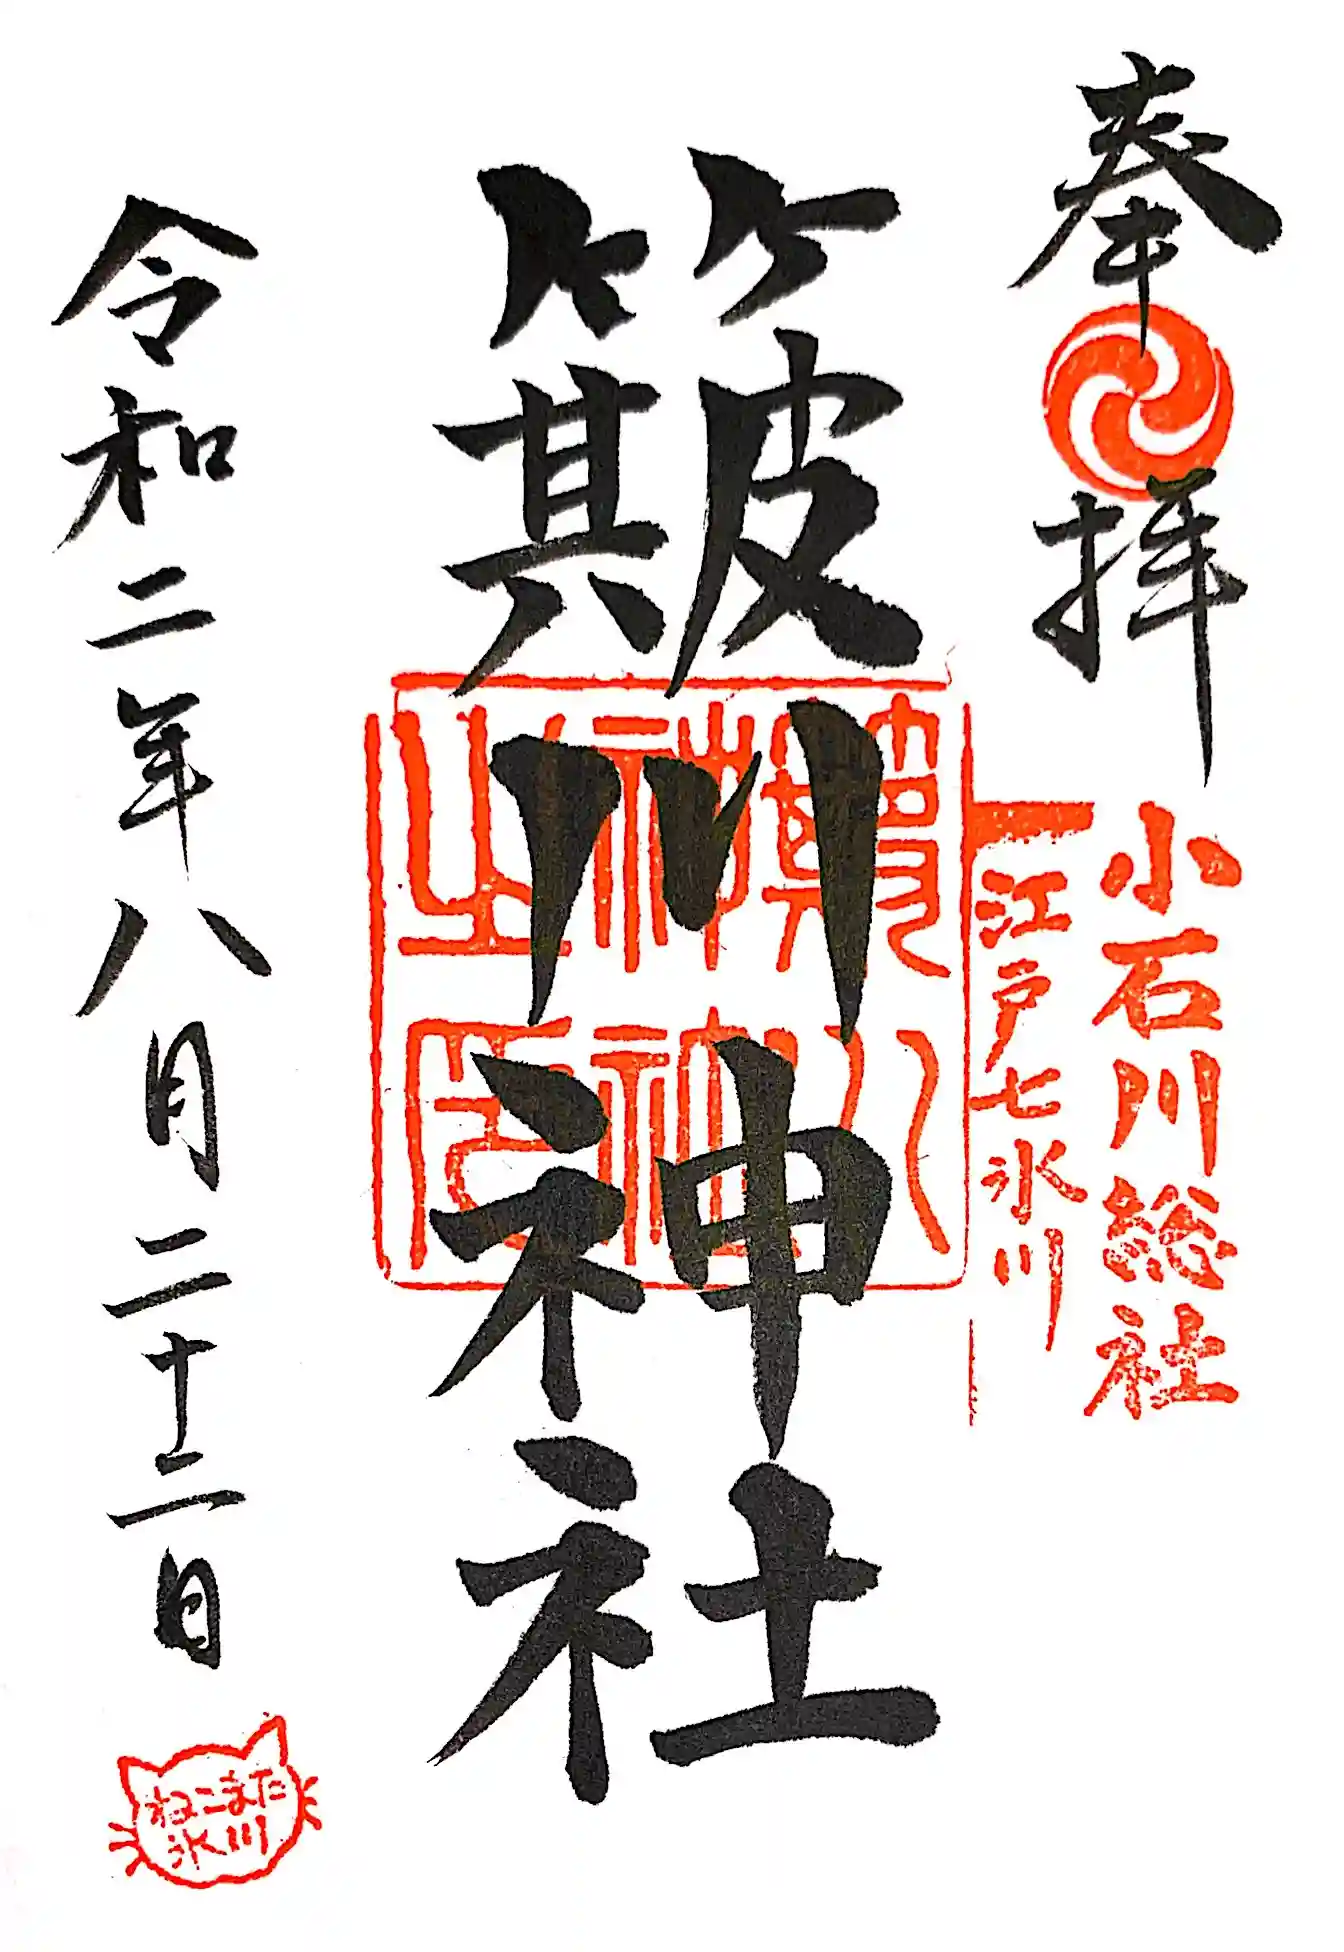 奉拝
小石川総社
江戸七氷川
簸川神社
簸川
神社
之印
令和二年八月二十二日
ねこまた
氷川